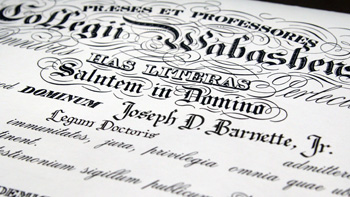 PRÆSES ET PROFESSORES
Collegii Wabashens
HAS LITERAS
Salutem in Domino
DOMINUM Joseph D. Barnette, Jr.
Legum Doctoris admittere
immunitates, jura, privilegia omnia quae
testimonium sigillum publicum